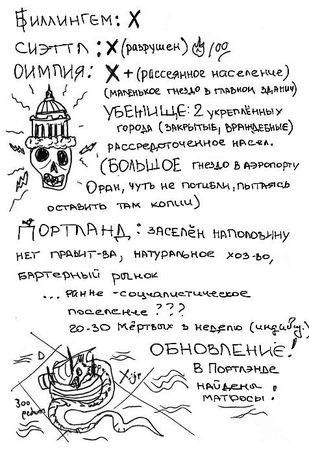 Биллингем: X
СИЭТТЛ: X (разрушен) %00
ОЛИМПИЯ: X + (рассеянное население)
(маленькое гнездо в главном здании)
УБЕЖИЩЕ: 2 укреплённых
города (закрытые, враждебные)
рассредоточенное насел.
(БОЛЬШОЕ гнездо в аэропорту
Оран, чуть не погибли, пытаясь
оставить там копии)
ПОРТЛАНД: заселён наполовину
нет правит-ва, натуральное хоз-во,
бартерный рынок
... ранне-социалистическое
поселение ???
20-30 мёртвых в неделю (индивид.)
ОБНОВЛЕНИЕ!
В Портлэнде
найдены
матросы!
D
X-
300